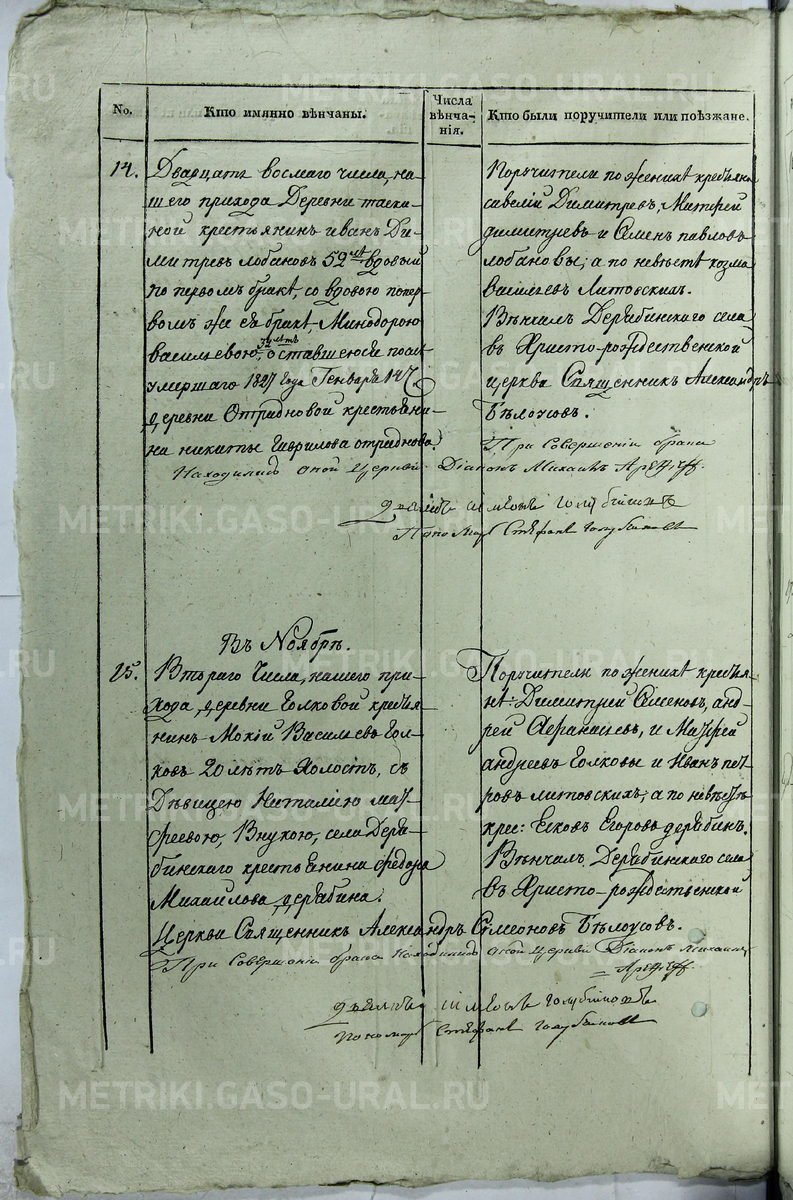 No.
Кто имянно вѣнчаны.
Числа вѣнча-нія.
Кто были поручители или поѣзжане.
14.
Дватцать восмаго числа, на-
шего прихода Деревни
ной крестьянинъ иванъ Ди-
митревъ лобановъ 52 лѣтъ вдовый
по первомъ бракѣ, со вдовою попер-
вомъ же бракѣ, Минодорою
васильевою, оставшеюся послѣ
умершаго 1827 года Генваря
деревни Отрадновой крестьяни-
на никиты Гаврилова отраднова.
Поручители по женихѣ
савелій Димитревъ, Матфей
димитревъ и Семенъ павловъ
лобановы; а по невѣстѣ козма
васильевъ Литовскихъ.
Вѣнчалъ Дерябинскаго села
въ Христо-рождественской
церкве Священникъ Александръ
Бѣлоусовъ.
При совершеніи брака
находились оной Церкви Діаконъ Михаилъ
Пономарь Стефанъ
Въ Ноябрѣ.
15.
Втораго Числа, нашего при-
хода, деревни Голковой крестья-
нинъ Мокій Васильевъ Гол-
ковъ 20 лѣтъ Холостъ, съ
Дѣвицею Наталіею мат-
феевою, Внукою, села Деря-
бинскаго крестьянина федора
Михаилова дерябина.
Поручители по женихѣ крестья-
не: Димитрей Семеновъ, анд-
рей Афанасьевъ, и Матфей
андреевъ Голковы и Иванъ пет-
ровъ литовскихъ; а по невѣстѣ
крес: Егоровъ дерябинъ.
Вѣнчалъ Дерябинскаго села
въ Христо-рождественской
Церкви Священникъ Александръ Симеоновъ Бѣлоусовъ.
При совершеніи брака находились оной Церкви Діаконъ Михаилъ
Пономарь Стефанъ
METRIKI.GASO-URAL.RU